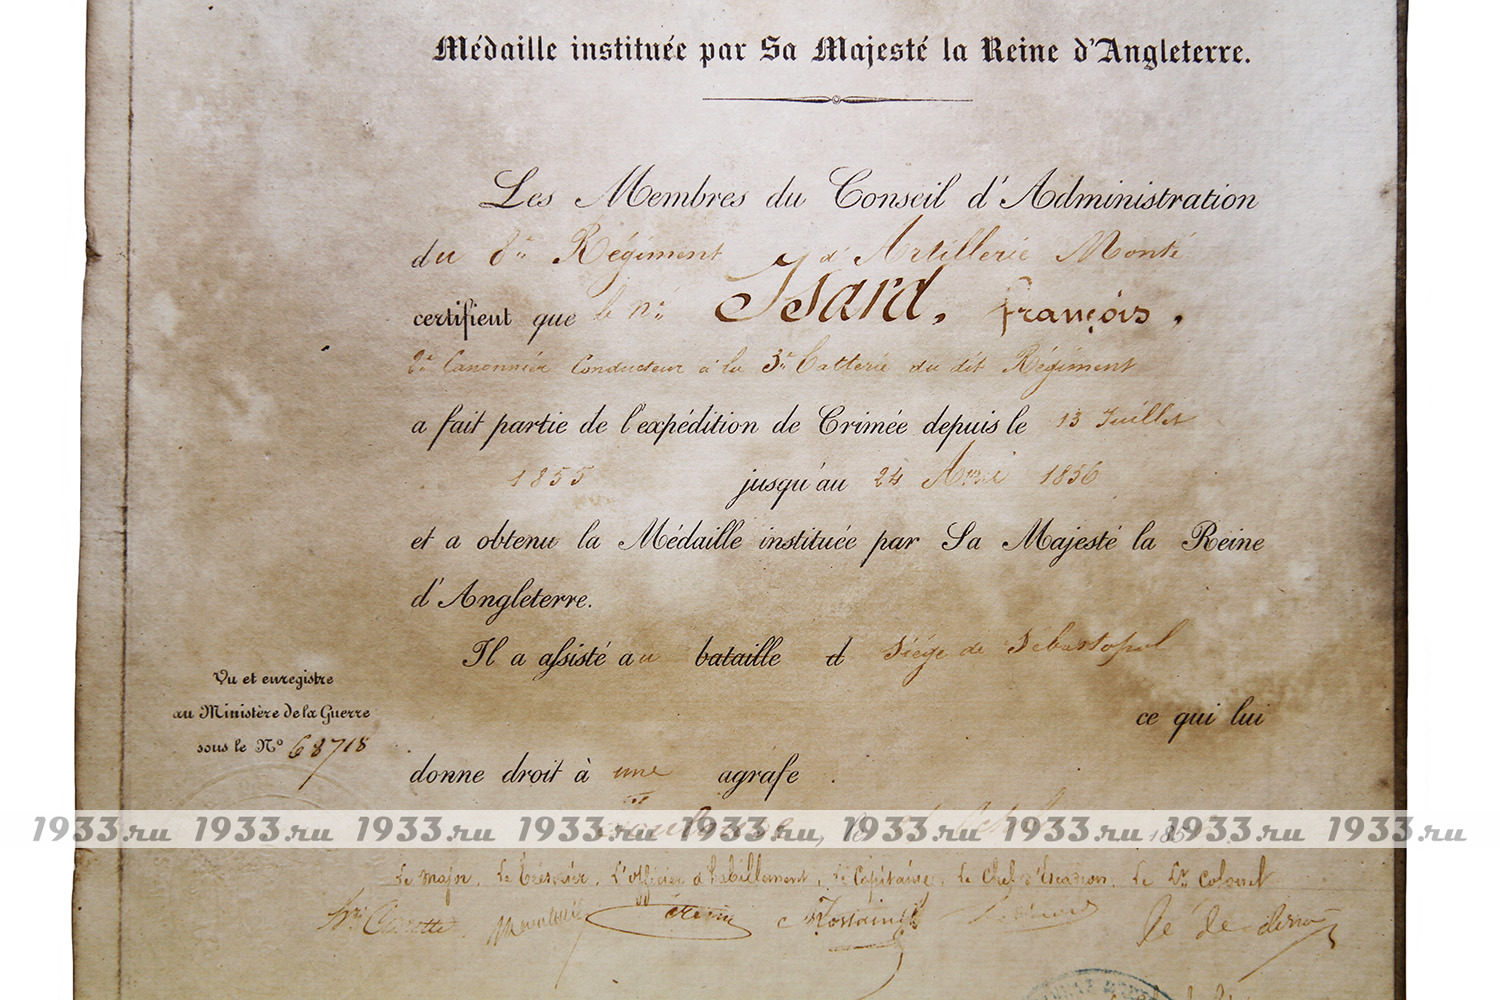 Médaille instituée par Sa Majesté la Reine d'Angleterre.
Les Membres du Conseil d'Administration
du 8e Régiment d'Artillerie Monté
certifient que le né Isard, françois,
2e Canonnier Conducteur à la 3e batterie du dit Régiment
a fait partie de l'expédition de Crimée depuis le 13 Juillet
1855 jusqu'au 24 Avril 1856
et a obtenu la Médaille instituée par Sa Majesté la Reine
d'Angleterre.
Il a assisté au bataille d Siége de Sébastopol
ce qui lui
Vu et enregistre
au Ministère de la Guerre
sous le No 68718
donne droit à une agrafe.
1933.ru 1933.ru 1933.ru 1933.ru 1933.ru 1933.ru 1933.ru 1933.ru 1933.ru
Toulouse, le 185
Le Major, le Trésorier, l'officier d'habillement, le Capitaine, le Chef d'Escadron, le Lt Colonel